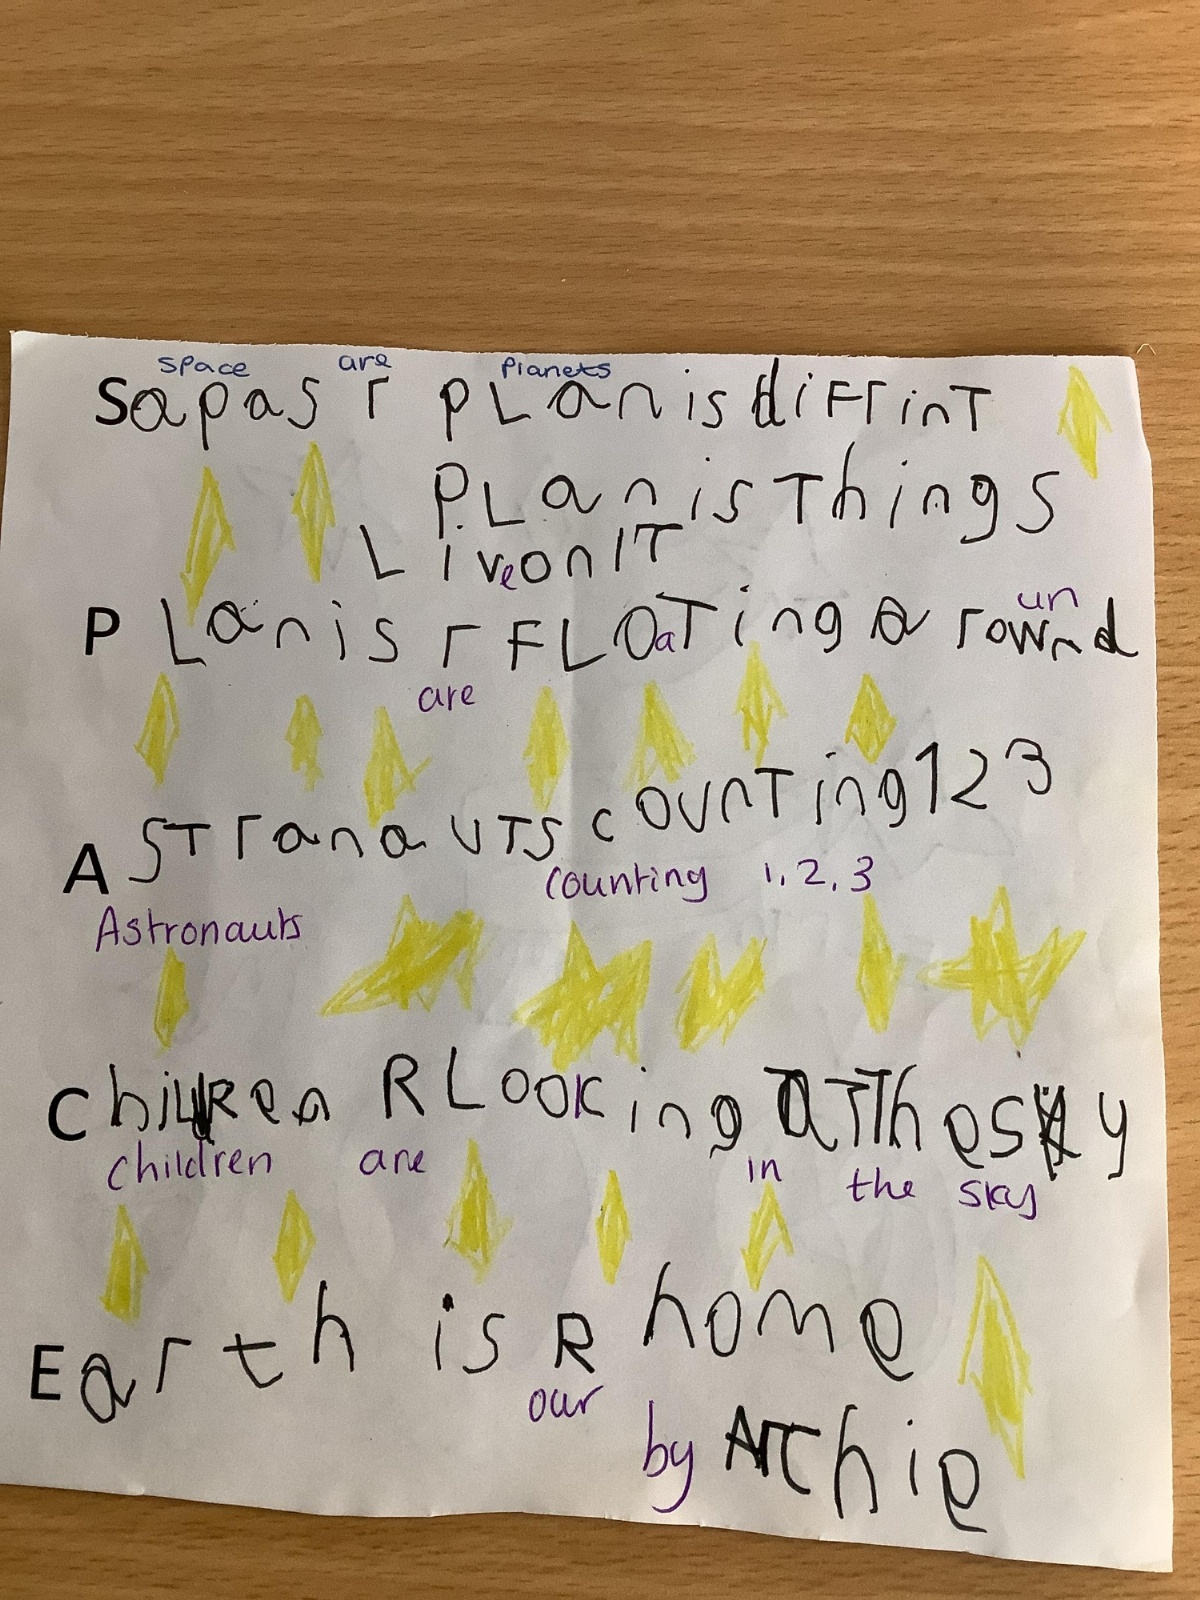 space are Planets
Sapas r pLanis diFrinT
pLanis Things
LiveonIT
un
PLanis r FLOaTing a rownd
are
ASTranauTS cOUnTing 1 2 3
Counting 1, 2, 3
Astronauts
Children R LooKing aT The sky
Children are in the sky
Earth is R home
our
by Archie